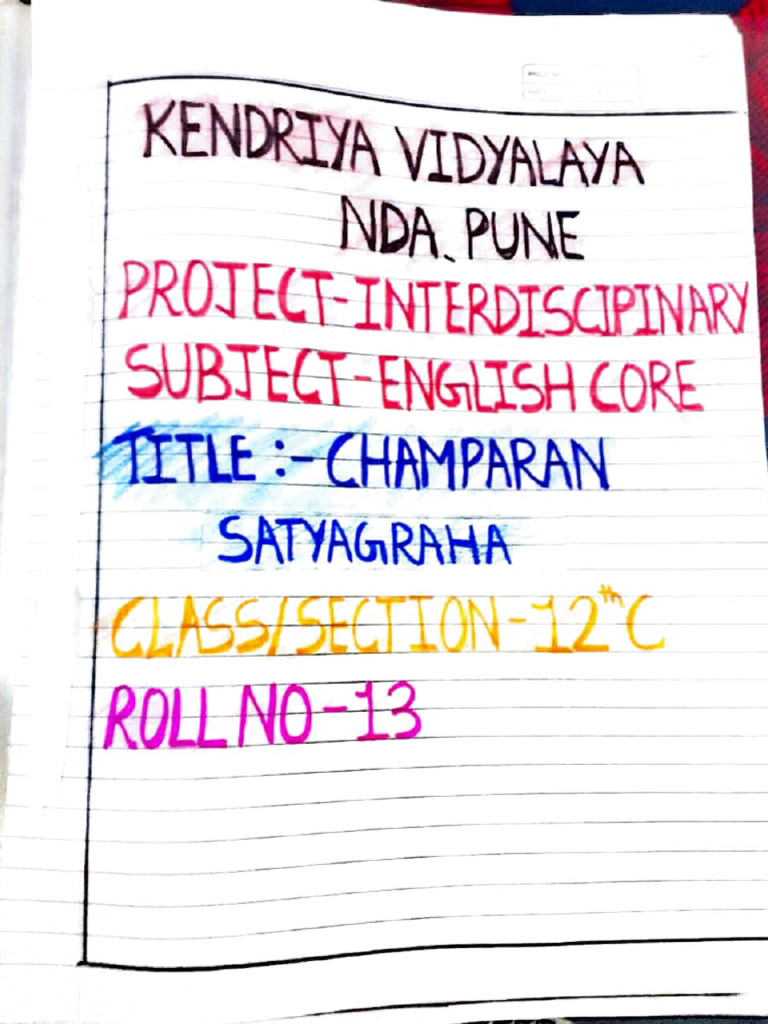 KENDRIYA VIDYALAYA
NDA, PUNE
PROJECT-INTERDISCIPINARY
SUBJECT-ENGLISH CORE
TITLE :- CHAMPARAN
SATYAGRAHA
CLASS/SECTION-12th C
ROLL NO-13